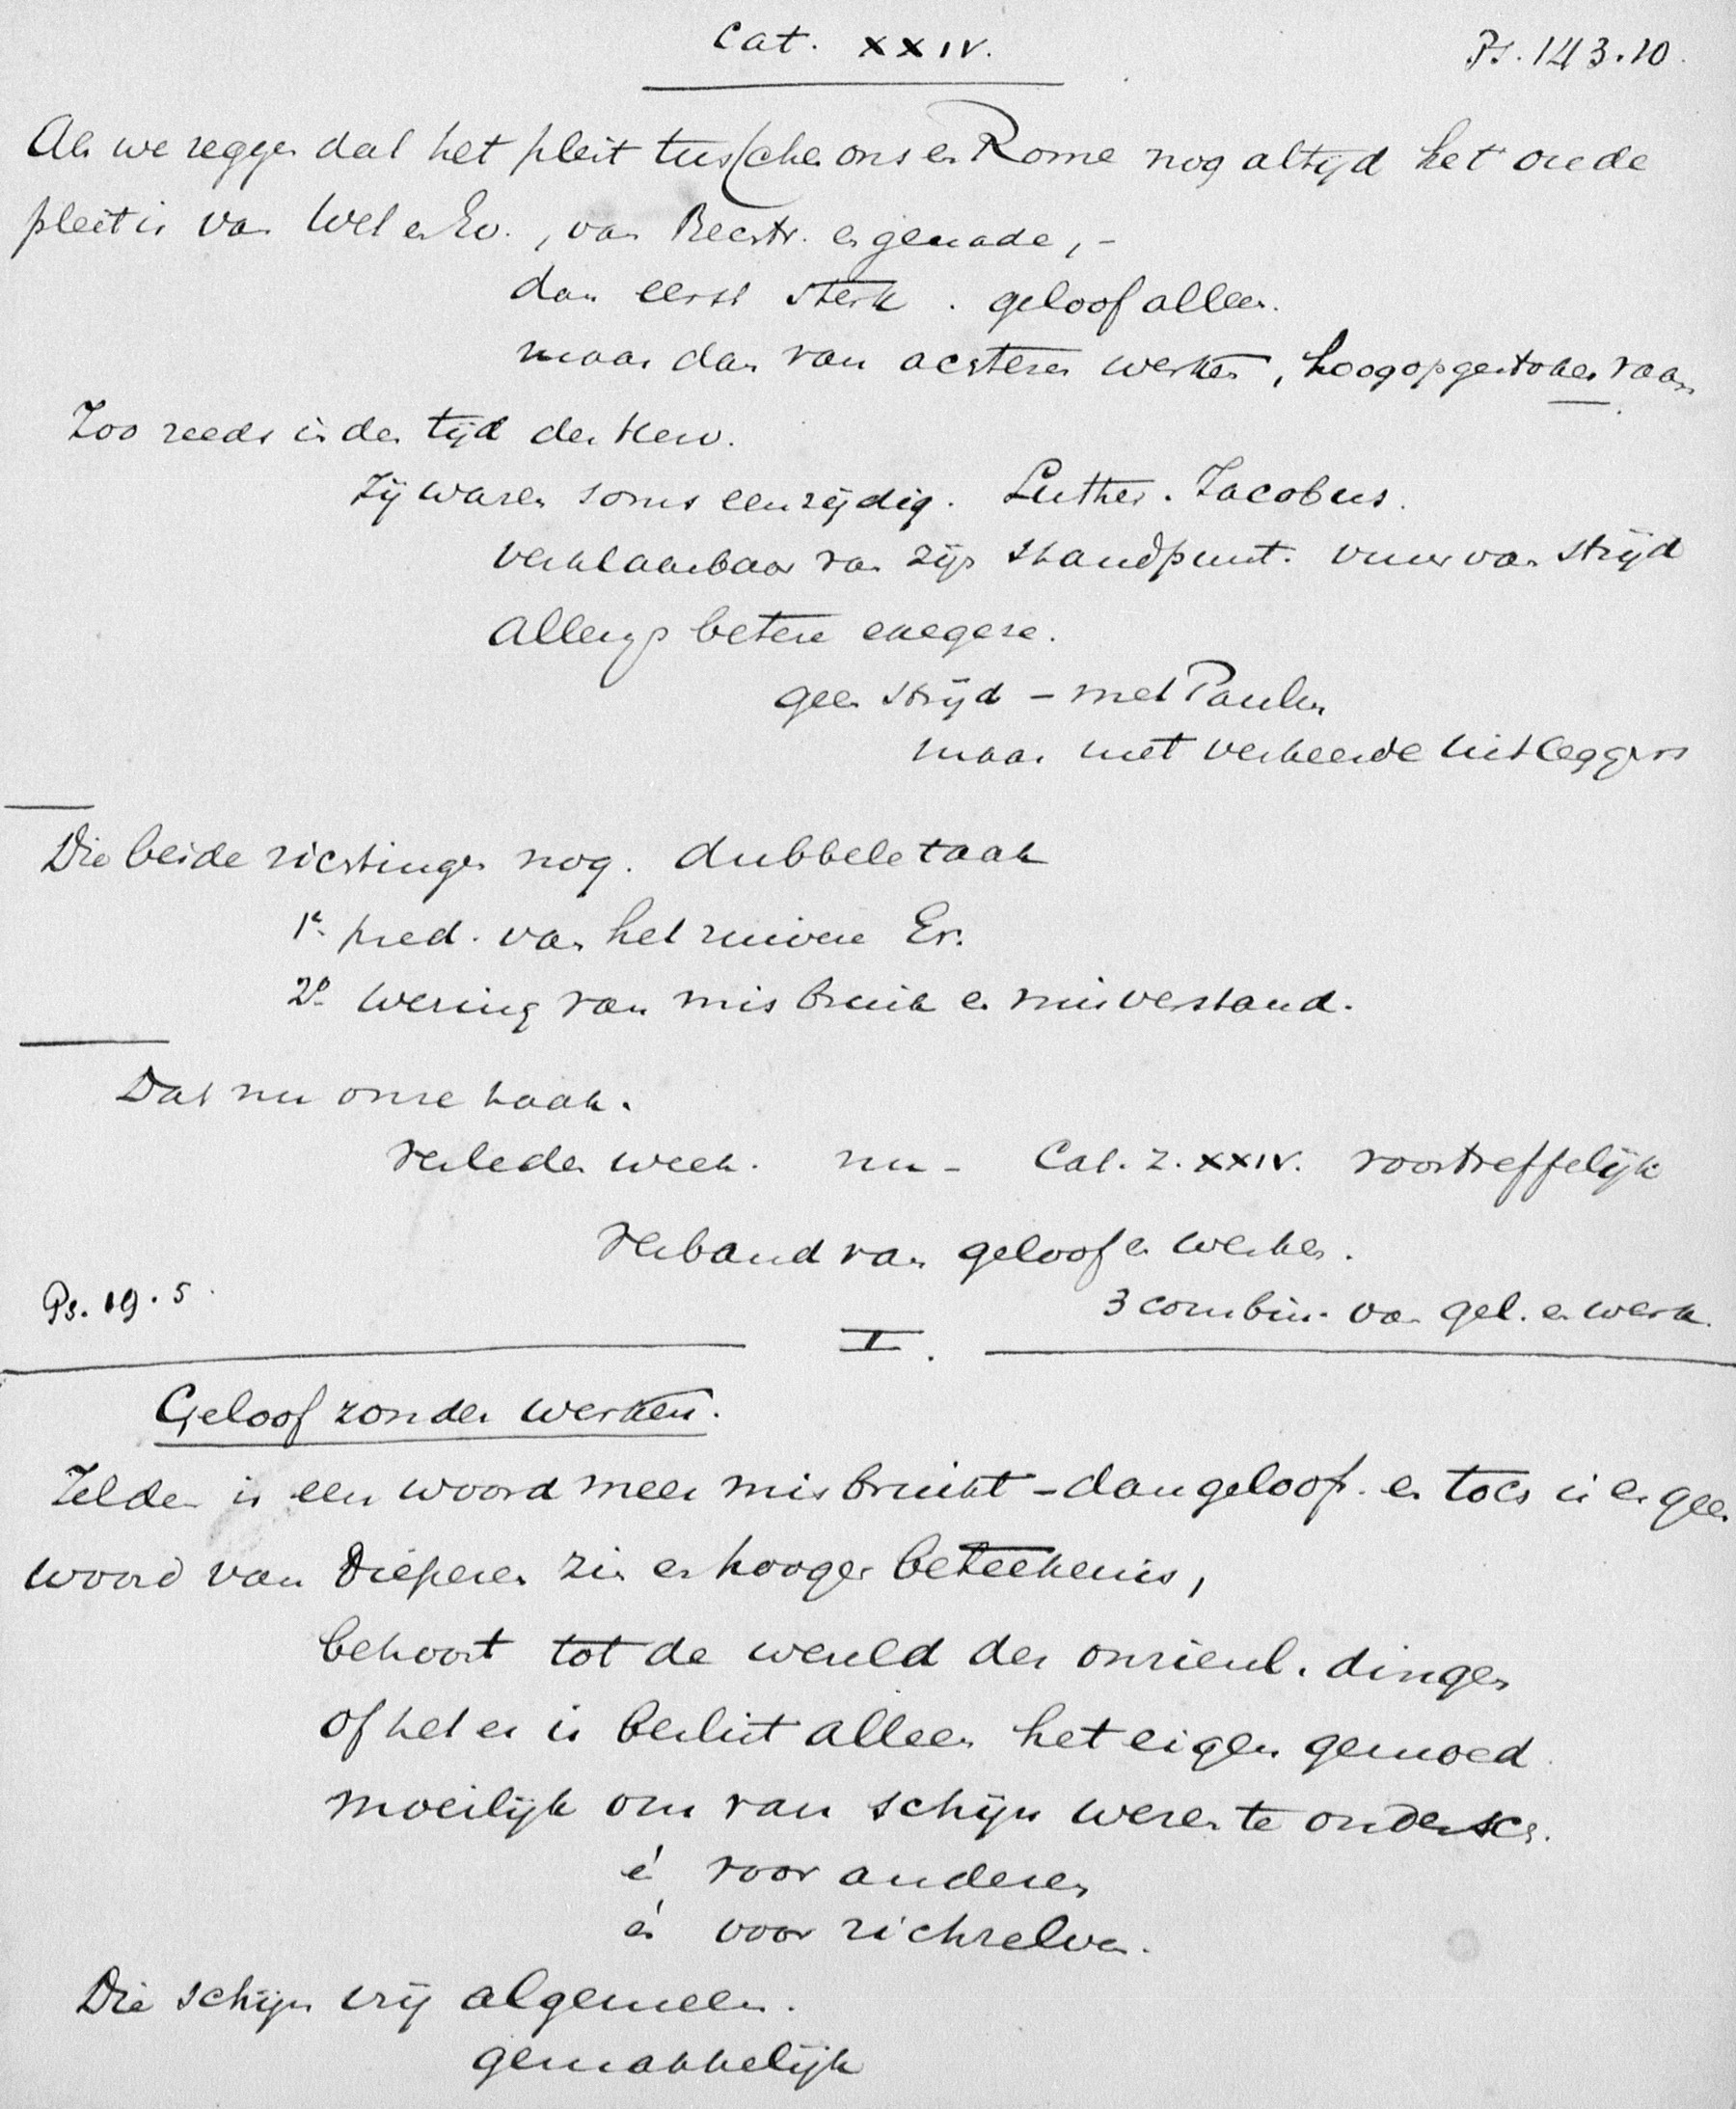 Cat. XXIV.
Ps. 143.10.
Als we zeggen dat het pleit tussche ons en Rome nog altijd het oude
pleit is van Wet en Ev., van Rechtv. en genade, -
dan eerst sterk. geloof alleen.
maar dan van achteren werken, hoog opgestoken vaan
Zoo reeds in den tijd der Herv.
Zij waren soms eenzijdig. Luther. Jacobus.
verklaarbaar van zijn standpunt. vuur van strijd
allengs betere exegese.
geen strijd - met Paulus
maar met verkeerde uitleggers
Die beide richtingen nog. dubbele taak
1e pred. van het zuivere Ev.
2e Wering van misbruik en misverstand.
Dat nu onze taak.
Verleden week. nu - Cat. Z. XXIV. voortreffelijk
Verband van geloof en werken.
Ps. 19. 5.
3 combin. van gel. en werk.
I.
Geloof zonder werken.
Zelden is een woord meer misbruikt - dan geloof. en toch is er geen
woord van dieperen zin en hooger beteekenis,
behoort tot de wereld der onzienl. dingen
of het er is beslist alleen het eigen gemoed
moeilijk om van schijn wezen te ondersch.
én voor anderen
én voor zichzelven.
Die schijn vrij algemeen.
gemakkelijk